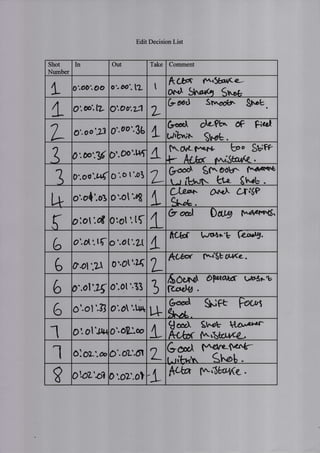 Edit Decision List
Shot Number In Out Take Comment
1 0:00:00 0:00:12 1 Actor Mistake and Shaky Shot
1 0:00:12 0:00:27 2 Good Smooth Shot.
2 0:00:27 0:00:36 1 Good depth of Field within Shot.
3 0:00:36 0:00:45 1 Movement too Stiff + Actor Mistake.
3 0:00:45 0:01:03 2 Good Smooth Movement Within the Shot.
4 0:01:03 0:01:08 1 Clean and Crisp Shot.
5 0:01:08 0:01:15 1 Good Movements.
6 0:01:15 0:01:21 1 Actor wasn't ready.
6 0:01:21 0:01:25 2 Actor mistake.
6 0:01:25 0:01:33 3 Sound Operator wasn't ready.
6 0:01:33 0:01:44 4 Good Shift Focus Shot.
7 0:01:44 0:02:00 1 Good Shot However Actor Mistake.
7 0:02:00 0:02:07 2 Good Movement within Shot.
8 0:02:07 0:02:09 1 Actor Mistake.